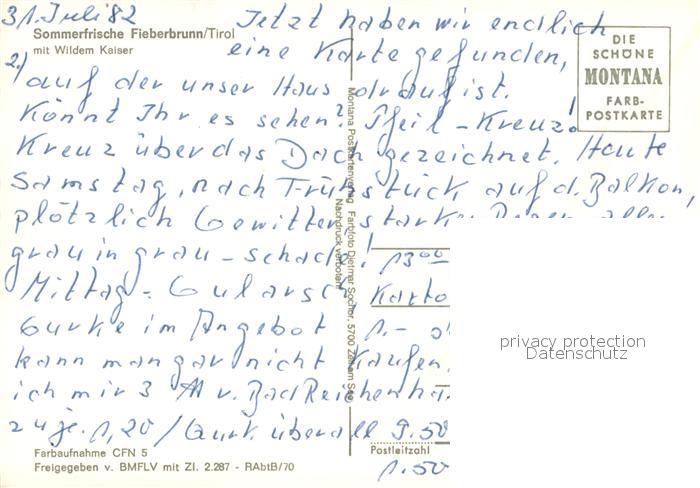 31. Juli 82 Jetzt haben wir endlich
Sommerfrische Fieberbrunn/Tirol
mit Wildem Kaiser
eine Karte gefunden,
2.) auf der unser Haus drauf ist.
Könnt Ihr es sehen? Pfeil - Kreuz!
Kreuz über das Dach gezeichnet. Heute
Samstag, nach Frühstück auf d. Balkon,
plötzlich Gewitter, starker Regen, alles
grau in grau - schade! 13⁰⁰
Mittag - Gularsch Karto
Gurke im Angebot 1.-
kann man gar nicht kaufen.
ich mir 3 v. Bad Reichenha
zu je. 1,20 / Gurk überall 9.50
1.50
DIE
SCHÖNE
MONTANA
FARB-
POSTKARTE
Montana Postkartenverlag Farbfoto Dietmar Socher, 5700 Zell am See
Nachdruck verboten!
privacy protection
Datenschutz
Postleitzahl
Farbaufnahme CFN 5
Freigegeben v. BMFLV mit Zl. 2.287 - RAbtB/70